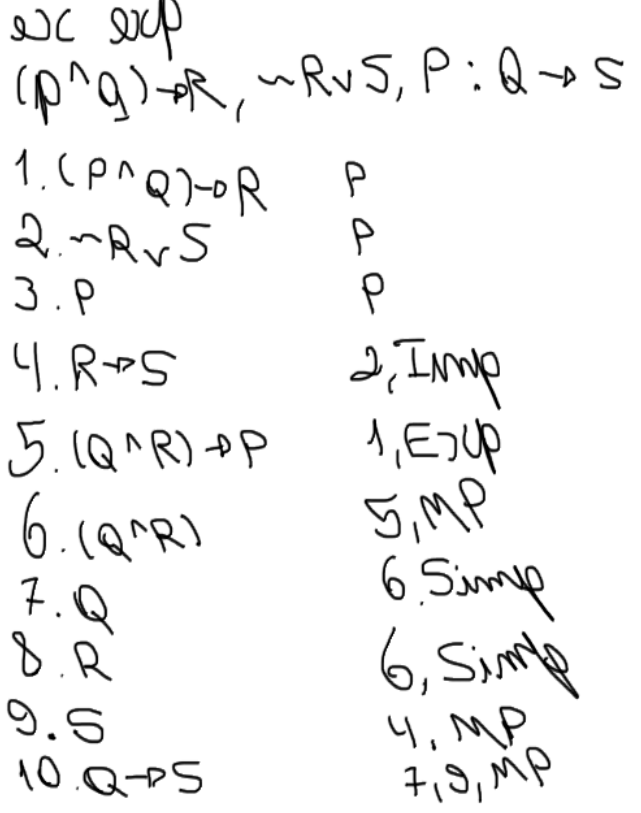 exc exp
(p^q)→R, ~RvS, P : Q→S
1. (P^Q)→R P
2. ~RvS P
3. P P
4. R→S 2, Imp
5. (Q^R)→P 1, Exp
6. (Q^R) 5, MP
7. Q 6. Simp
8. R 6, Simp
9. S 4. MP
10. Q→S 7, 9, MP